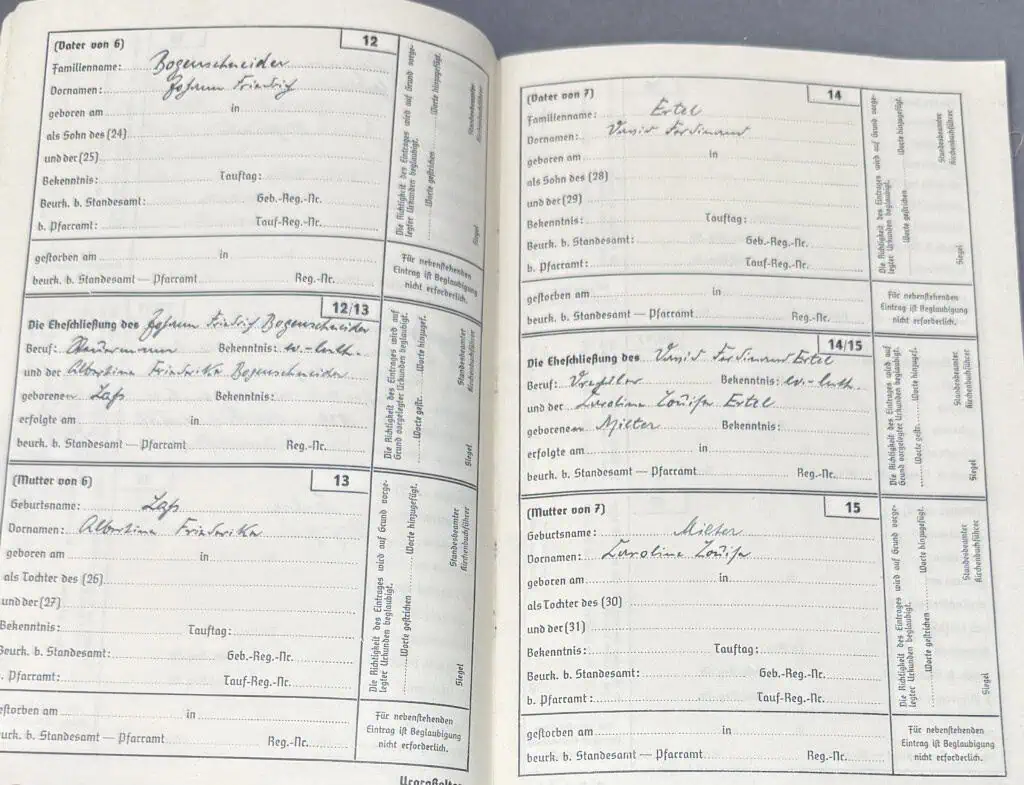 12
(Vater von 6)
Familienname: Bogenschneider
Vornamen: Johann Friedrich
geboren am in
als Sohn des (24)
und der (25)
Bekenntnis: Tauftag:
Beurk. b. Standesamt: Geb.-Reg.-Nr.
b. Pfarramt: Tauf-Reg.-Nr.
Die Richtigkeit des Eintrages wird auf Grund vorge-
legter Urkunden beglaubigt.
Worte gestrichen Worte hinzugefügt.
Siegel
Standesbeamter
Kirchenbuchführer
gestorben am in
beurk. b. Standesamt — Pfarramt Reg.-Nr.
Für nebenstehenden
Eintrag ist Beglaubigung
nicht erforderlich.
12/13
Die Eheschließung des Johann Friedrich Bogenschneider
Beruf: Steuermann Bekenntnis: ev.-luth.
und der Albertine Friederike Bogenschneider
geborenen Bekenntnis:
erfolgte am in
beurk. b. Standesamt — Pfarramt Reg.-Nr.
Die Richtigkeit des Eintrages wird auf
Grund vorgelegter Urkunden beglaubigt.
Worte gestr. Worte hinzugef.
Siegel
Standesbeamter
Kirchenbuchführer
13
(Mutter von 6)
Geburtsname:
Vornamen: Albertine Friederike
geboren am in
als Tochter des (26)
und der (27)
Bekenntnis: Tauftag:
Beurk. b. Standesamt: Geb.-Reg.-Nr.
b. Pfarramt: Tauf-Reg.-Nr.
Die Richtigkeit des Eintrages wird auf Grund vorge-
legter Urkunden beglaubigt.
Worte gestrichen Worte hinzugefügt.
Siegel
Standesbeamter
Kirchenbuchführer
gestorben am in
beurk. b. Standesamt — Pfarramt Reg.-Nr.
Für nebenstehenden
Eintrag ist Beglaubigung
nicht erforderlich.
Urgroßelter
14
(Vater von 7)
Familienname: Ertel
Vornamen: David Ferdinand
geboren am in
als Sohn des (28)
und der (29)
Bekenntnis: Tauftag:
Beurk. b. Standesamt: Geb.-Reg.-Nr.
b. Pfarramt: Tauf-Reg.-Nr.
Die Richtigkeit des Eintrages wird auf Grund vorge-
legter Urkunden beglaubigt.
Worte gestrichen Worte hinzugefügt.
Siegel
Standesbeamter
Kirchenbuchführer
gestorben am in
beurk. b. Standesamt — Pfarramt Reg.-Nr.
Für nebenstehenden
Eintrag ist Beglaubigung
nicht erforderlich.
14/15
Die Eheschließung des David Ferdinand Ertel
Beruf: Bekenntnis: ev.-luth.
und der Karoline Louise Ertel
geborenen Milter Bekenntnis:
erfolgte am in
beurk. b. Standesamt — Pfarramt Reg.-Nr.
Die Richtigkeit des Eintrages wird auf
Grund vorgelegter Urkunden beglaubigt.
Worte gestr. Worte hinzugef.
Siegel
Standesbeamter
Kirchenbuchführer
15
(Mutter von 7)
Geburtsname: Milter
Vornamen: Karoline Louise
geboren am in
als Tochter des (30)
und der (31)
Bekenntnis: Tauftag:
Beurk. b. Standesamt: Geb.-Reg.-Nr.
b. Pfarramt: Tauf-Reg.-Nr.
Die Richtigkeit des Eintrages wird auf Grund vorge-
legter Urkunden beglaubigt.
Worte gestrichen Worte hinzugefügt.
Siegel
Standesbeamter
Kirchenbuchführer
gestorben am in
beurk. b. Standesamt — Pfarramt Reg.-Nr.
Für nebenstehenden
Eintrag ist Beglaubigung
nicht erforderlich.